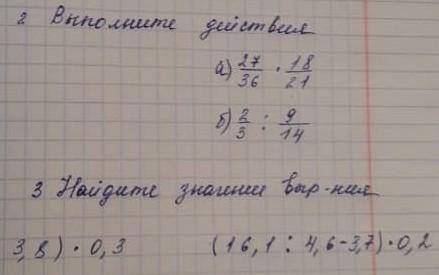 2 Выполните действия
а) 27/36 · 18/21
б) 2/3 : 9/14
3 Найдите значение выр-ния
3,8) · 0,3 (16,1 : 4,6-3,7) · 0,2